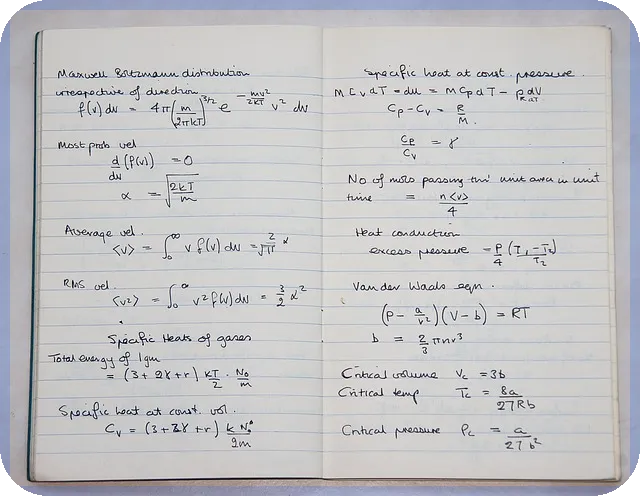 Maxwell Boltzmann distribution
irrespective of direction
f(v) dv = 4π(m/2πkT)^3/2 e^-mv²/2kT v² dv
Most prob vel
d/dv (f(v)) = 0
α = √(2kT/m)
Average vel.
<v> = ∫₀^∞ v f(v) dv = 2/√π α
RMS vel.
<v²> = ∫₀^∞ v² f(v) dv = 3/2 α²
Specific Heats of gases
Total energy of 1gm
= (3 + 2γ + r) kT/2 · N₀/m
Specific heat at const. vol.
Cv = (3 + 2γ + r) k N₀/2m
Specific heat at const. pressure.
M Cv dT = du = M Cp dT - p dV
R dT
Cp - Cv = R/M.
Cp/Cv = γ
No of mols passing thro' unit area in unit
time = n<v>/4
Heat conduction
excess pressure = P/4 (T₁ - T₂)/T₂
Van der Waals eqn.
(P - a/v²)(V - b) = RT
b = 2/3 πnr³
Critical volume Vc = 3b
Critical temp Tc = 8a/27Rb
Critical pressure Pc = a/27b²